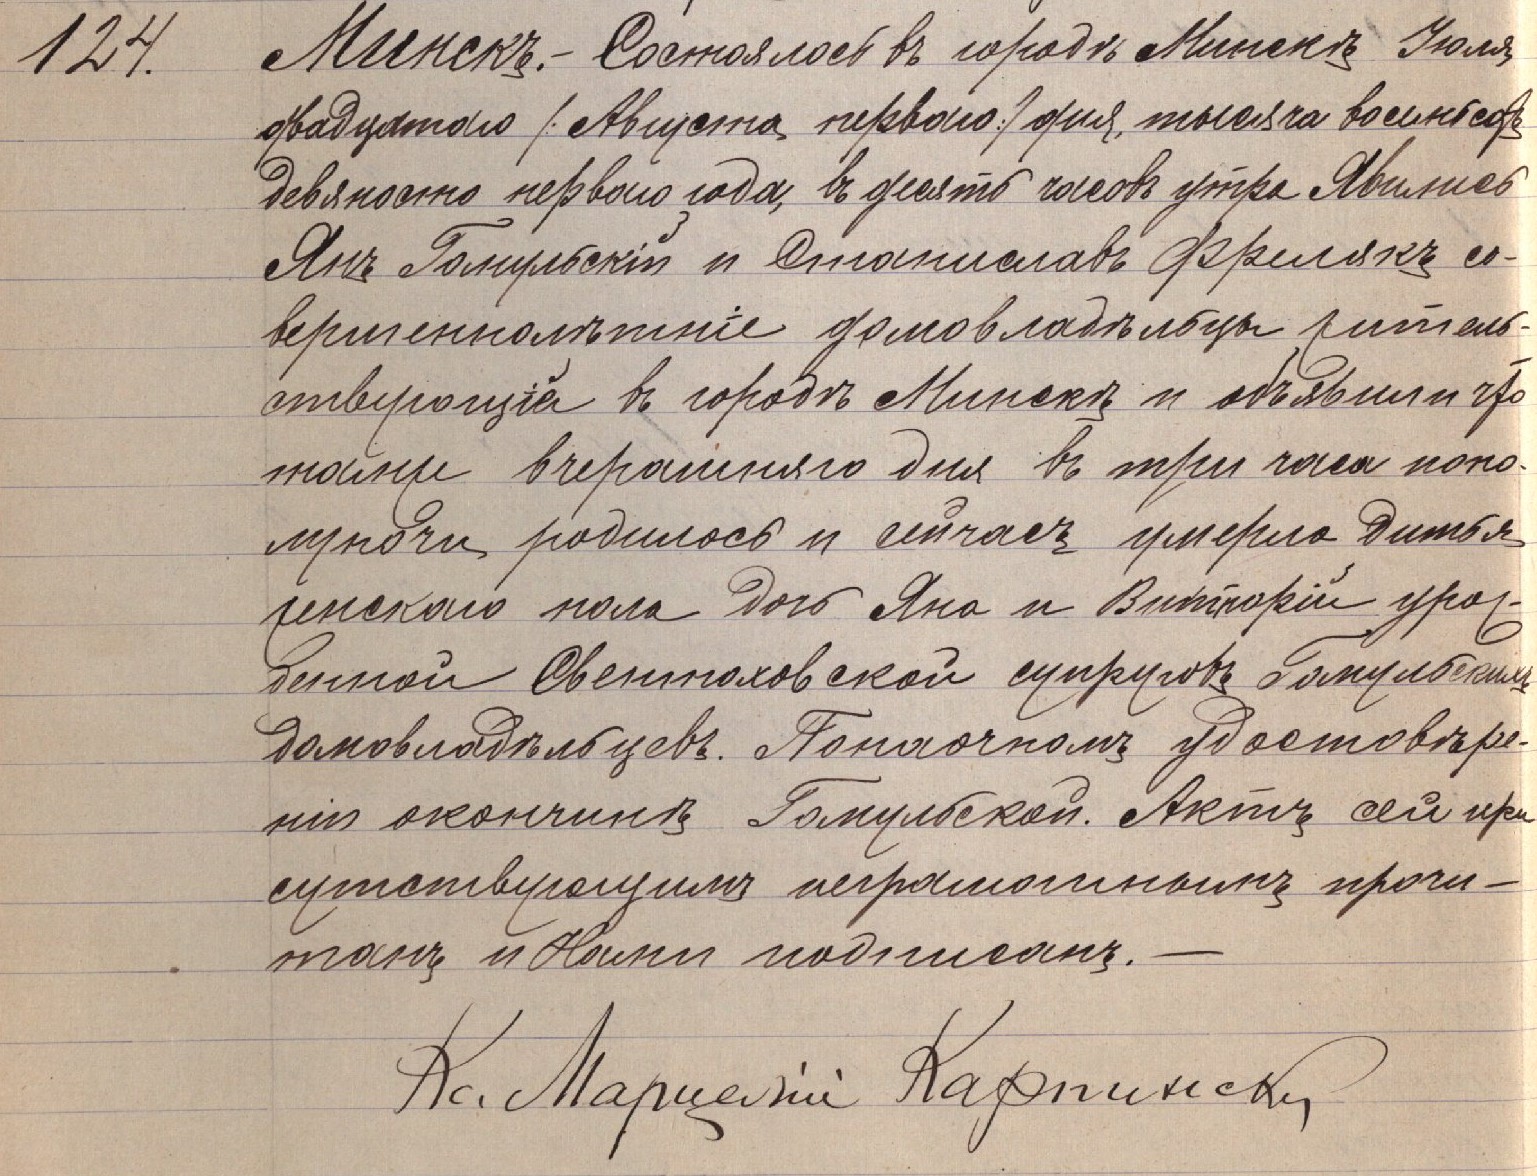 124. Минскъ. – Состоялось въ городѣ Минскѣ Июля
двадцатаго /: Августа перваго :/ дня, тысяча восемьсотъ
девяносто перваго года, въ десять часовъ утра Явились
Янъ Гомульскій и Станиславъ Фрелякъ со-
вершеннолѣтніе домовладѣльцы житель-
ствующіе въ городѣ Минскѣ и объявили что
тамже вчерашняго дня въ три часа попо-
луночи родилось и сейчасъ умерло Дитя
женскаго пола дочь Яна и Викторіи урож-
денной Свентоховской супруговъ Гомульскихъ
домовладѣльцевъ. По наочномъ удостовѣре-
ніи окончинѣ Гомульской. Актъ сей при
сутствующимъ неграмотнымъ прочи –
танъ и Нами подписанъ. —
Кс. Марцелій Карпинскi